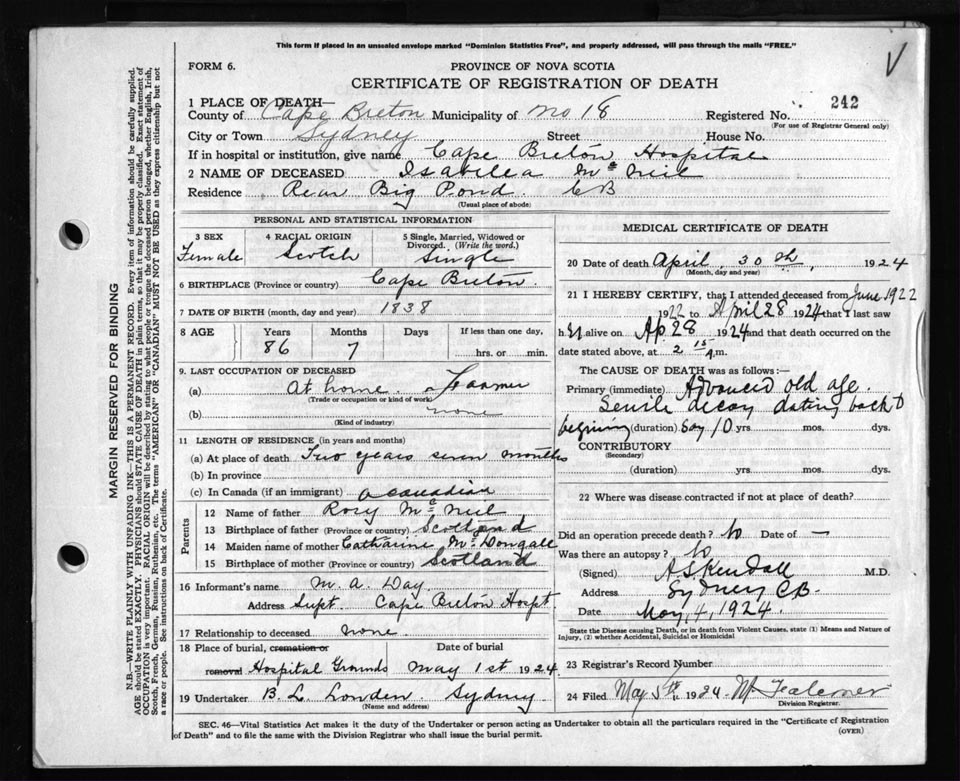 This form if placed in an unsealed envelope marked "Dominion Statistics Free", and properly addressed, will pass through the mails "FREE."
FORM 6.
PROVINCE OF NOVA SCOTIA
CERTIFICATE OF REGISTRATION OF DEATH
1 PLACE OF DEATH—
County of Cape Breton Municipality of No 18 Registered No. 242
(For use of Registrar General only)
City or Town Sydney Street House No.
If in hospital or institution, give name Cape Breton Hospital
2 NAME OF DECEASED Isabella McNeil
Residence Rear Big Pond. CB
(Usual place of abode)
PERSONAL AND STATISTICAL INFORMATION
3 SEX
Female
4 RACIAL ORIGIN
Scotch
5 Single, Married, Widowed or Divorced. (Write the word.)
Single
6 BIRTHPLACE (Province or country) Cape Breton.
7 DATE OF BIRTH (month, day and year) 1838
8 AGE Years Months Days If less than one day,
86 7 hrs. or min.
9. LAST OCCUPATION OF DECEASED
(a) At home. Farmer
(Trade or occupation or kind of work)
(b) none
(Kind of industry)
11 LENGTH OF RESIDENCE (in years and months)
(a) At place of death Two years seven months
(b) In province
(c) In Canada (if an immigrant) a Canadian
Parents
12 Name of father Rory McNeil
13 Birthplace of father (Province or country) Scotland
14 Maiden name of mother Catharine McDougall
15 Birthplace of mother (Province or country) Scotland
16 Informant's name M. A. Day
Address Supt. Cape Breton Hospt.
17 Relationship to deceased none.
18 Place of burial, cremation or Date of burial
removal Hospital Grounds May 1st 1924
19 Undertaker B. L. Londen. Sydney
(Name and address)
MEDICAL CERTIFICATE OF DEATH
20 Date of death April 30th, 1924
(Month, day and year)
21 I HEREBY CERTIFY, that I attended deceased from June 1922
1922 to April 28 1924 that I last saw
h er alive on Ap. 28 1924 and that death occurred on the
date stated above, at 2 15 a.m.
The CAUSE OF DEATH was as follows:—
Primary (immediate) Advanced old age.
Senile decay dating back to
begining (duration) Say 10 yrs. mos. dys.
CONTRIBUTORY
(Secondary)
(duration) yrs. mos. dys.
22 Where was disease contracted if not at place of death?
Did an operation precede death? No Date of —
Was there an autopsy? No
(Signed) A S Kendall M.D.
Address Sydney C.B.
Date May, 4, 1924.
State the Disease causing Death, or in death from Violent Causes, state (1) Means and Nature of
Injury, (2) whether Accidental, Suicidal or Homicidal
23 Registrar's Record Number
24 Filed May 5th, 1924 M. Falconer
Division Registrar.
SEC. 46—Vital Statistics Act makes it the duty of the Undertaker or person acting as Undertaker to obtain all the particulars required in the "Certificate of Registration
of Death" and to file the same with the Division Registrar who shall issue the burial permit. (OVER)
MARGIN RESERVED FOR BINDING
N.B.—WRITE PLAINLY WITH UNFADING INK—THIS IS A PERMANENT RECORD. Every item of information should be carefully supplied.
AGE should be stated EXACTLY. PHYSICIANS should STATE CAUSE OF DEATH in plain terms, so that it may be properly classified. Exact statement of
OCCUPATION is very important. RACIAL ORIGIN will be described by stating to what people or tongue the deceased person belonged, whether English, Irish,
Scotch, French, German, Russian, Ruthenian, etc. The terms "AMERICAN" OR "CANADIAN" MUST NOT BE USED as they express citizenship but not
a race or people. See instructions on back of Certificate.